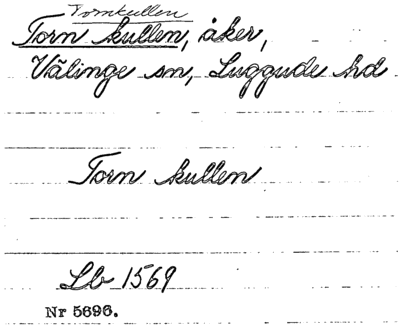 Tornkullen
Torn kullen, åker,
Välinge sn, Luggude hd
Torn kullen
Lb 1569
Nr 5696.